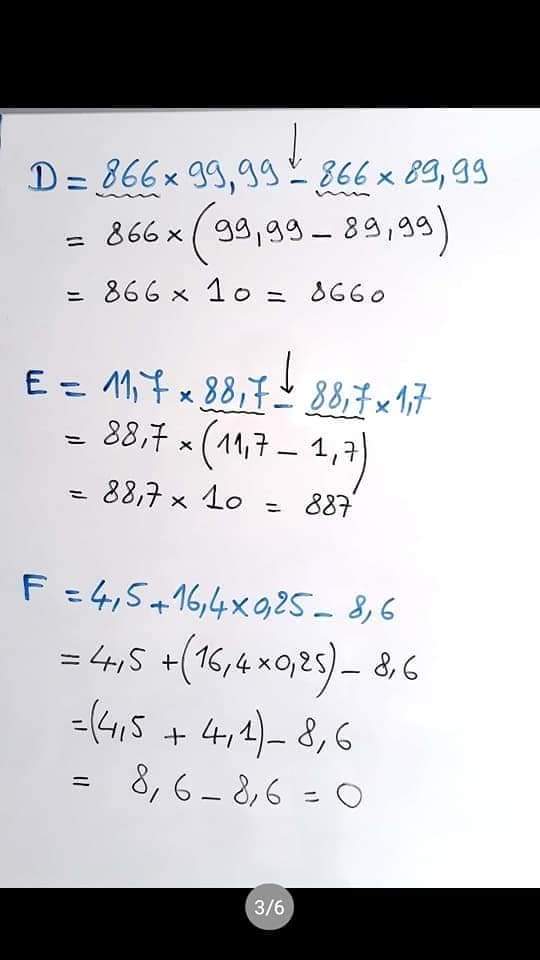 D = 866 × 99,99 - 866 × 89,99
= 866 × (99,99 - 89,99)
= 866 × 10 = 8660
E = 11,7 × 88,7 - 88,7 × 1,7
= 88,7 × (11,7 - 1,7)
= 88,7 × 10 = 887
F = 4,5 + 16,4 × 0,25 - 8,6
= 4,5 + (16,4 × 0,25) - 8,6
= (4,5 + 4,1) - 8,6
= 8,6 - 8,6 = 0
3/6